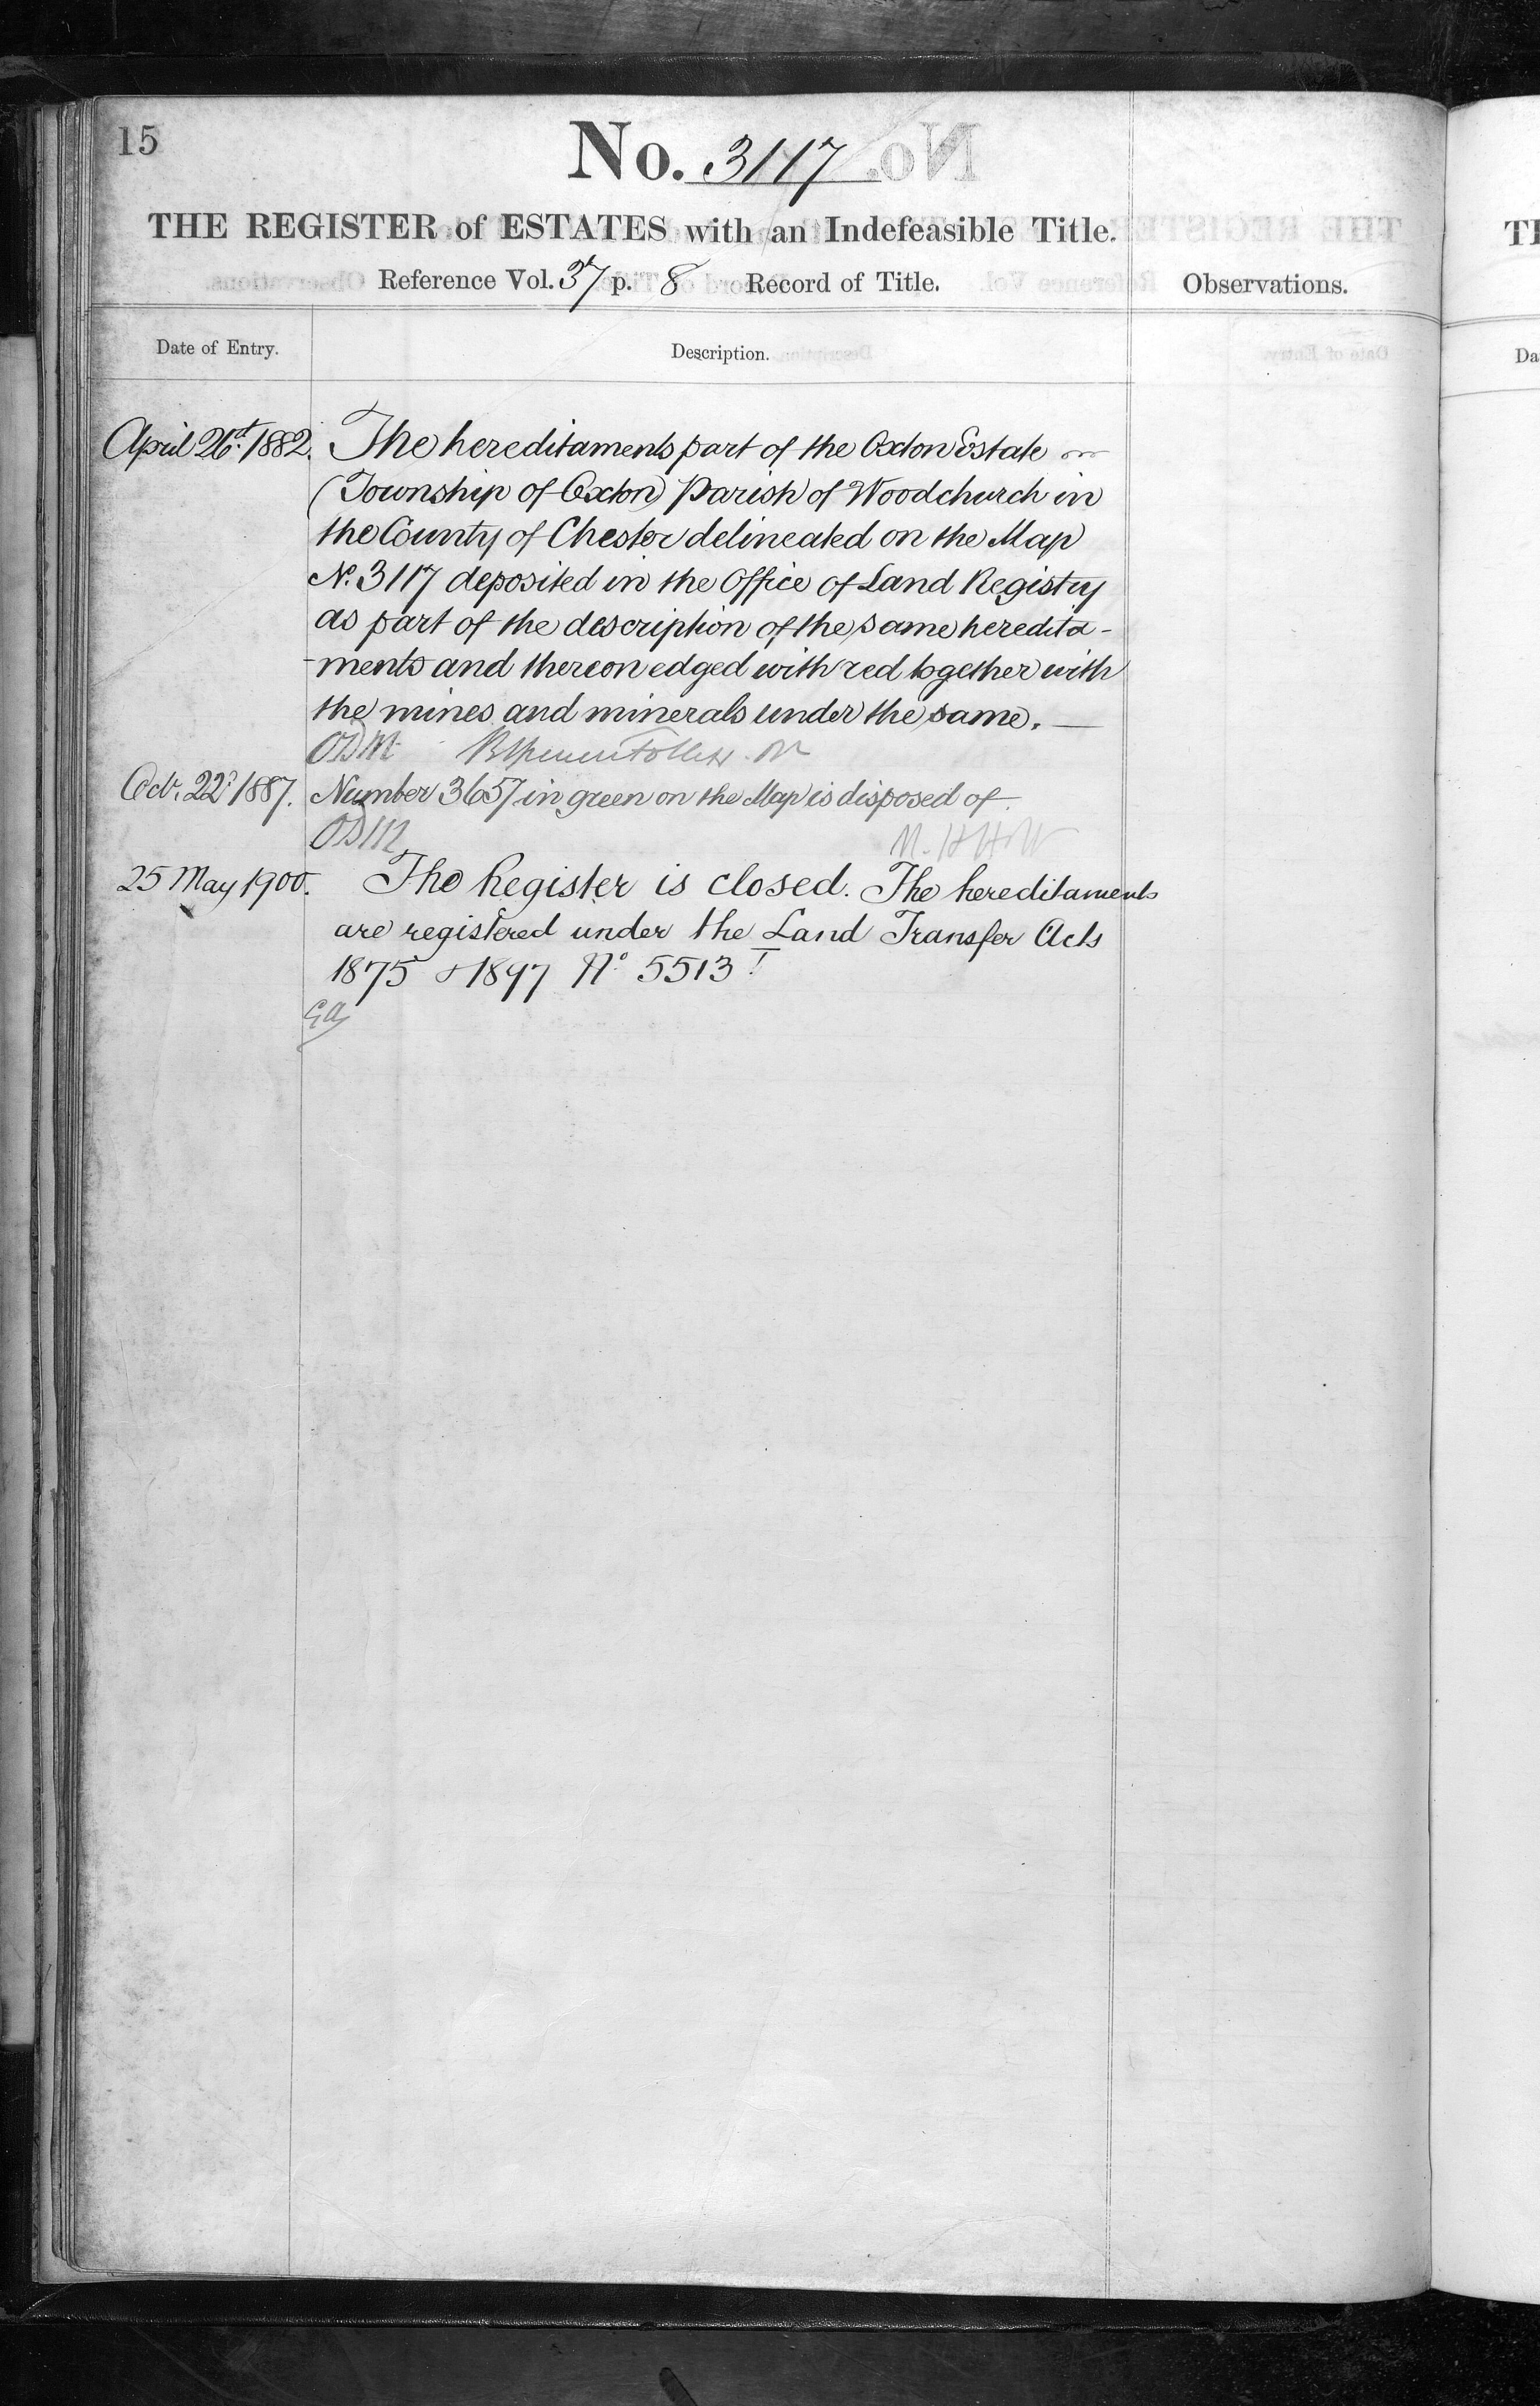 15
No. 3117
THE REGISTER of ESTATES with an Indefeasible Title.
Reference Vol. 37 p. 8 Record of Title.
Observations.
Date of Entry.
Description.
April 26t. 1882. The hereditaments part of the Oxton Estate in
(Township of Oxton) Parish of Woodchurch in
the County of Chester delineated on the Map
No. 3117 deposited in the Office of Land Registry
as part of the description of the same heredita-
-ments and thereon edged with red together with
the mines and minerals under the same. —
Oct. 22d 1887. Number 3657 in green on the Map is disposed of.
25 May 1900. The Register is closed. The hereditaments
are registered under the Land Transfer Acts
1875 & 1897 No 5513
TH
Da